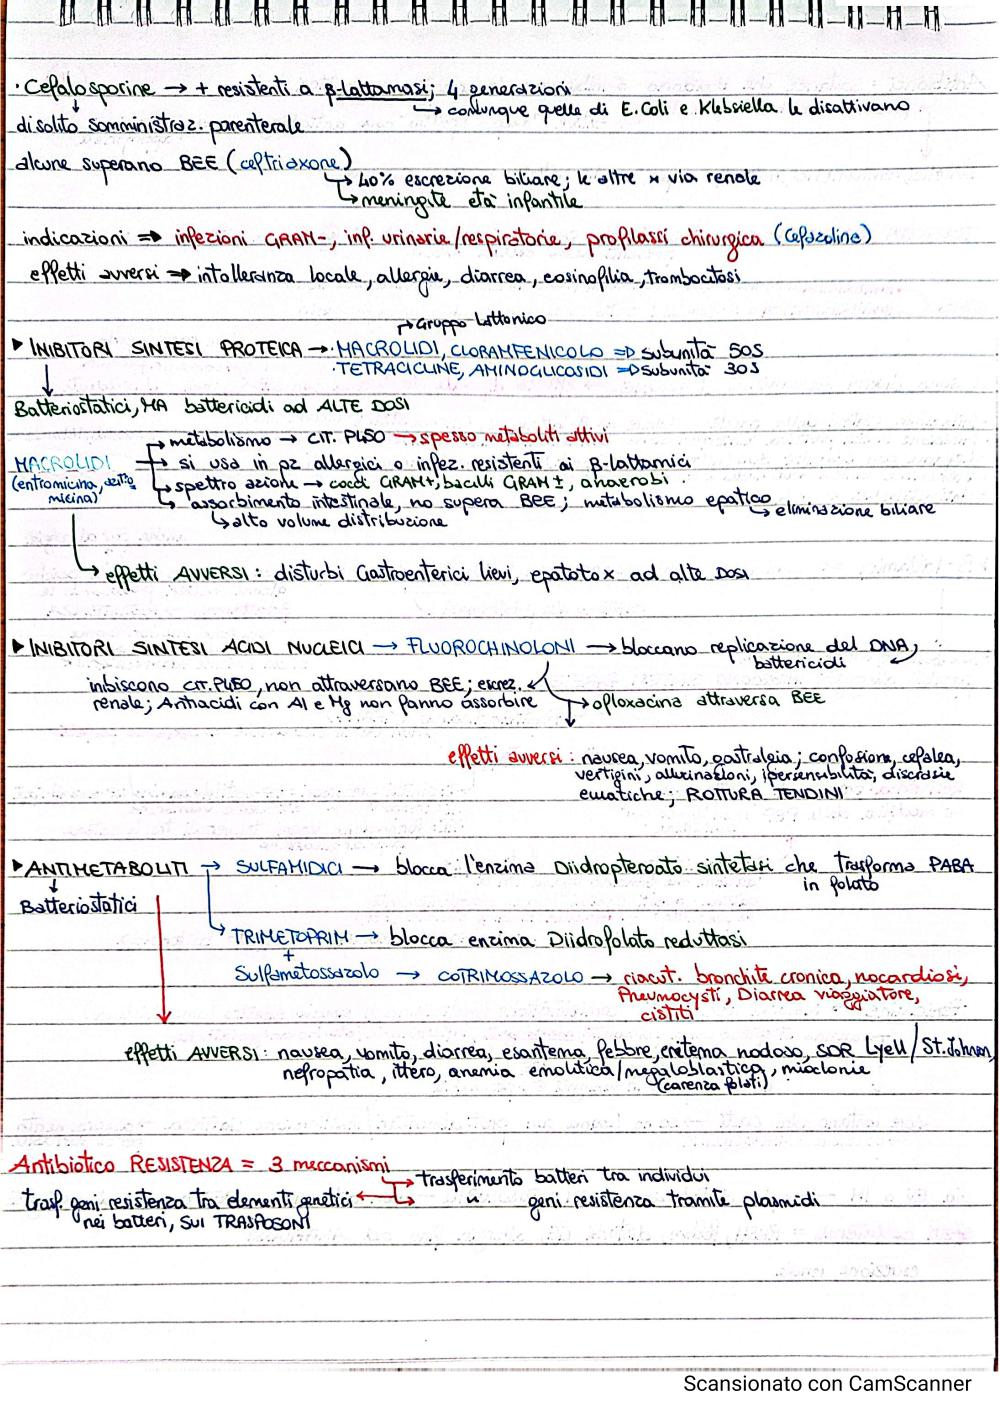 · Cefalosporine → + resistenti a β-lattamasi; 4 generazioni
↳ comunque quelle di E.Coli e Klebsiella le disattivano
di solito somministraz. parenterale
alcune superano BEE (ceftriaxone)
↳ 40% escrezione biliare; le altre x via renale
↳ meningite età infantile
indicazioni ⇒ infezioni GRAM-, inf. urinarie/respiratorie, profilassi chirurgica (Cefazolina)
effetti avversi ⇒ intolleranza locale, allergie, diarrea, eosinofilia, trombocitosi
↱ Gruppo Lattonico
▸ INIBITORI SINTESI PROTEICA → · MACROLIDI, CLORAMFENICOLO ⇒ subunità 50S
· TETRACICLINE, AMINOGLICOSIDI ⇒ subunità 30S
Batteriostatici, MA battericidi ad ALTE DOSI
metabolismo → CIT. P450 → spesso metaboliti attivi
MACROLIDI → si usa in pz allergici o infez. resistenti ai β-lattamici
(eritromicina, azitro
micina)
spettro azione → cocchi GRAM+, bacilli GRAM±, anaerobi
assorbimento intestinale, no supera BEE; metabolismo epatico
↳ eliminazione biliare
↳ alto volume distribuzione
↳ effetti AVVERSI: disturbi Gastroenterici lievi, epatotox ad alte DOSI
▸ INIBITORI SINTESI ACIDI NUCLEICI → FLUOROCHINOLONI → bloccano replicazione del DNA,
battericidi
inbiscono CIT. P450, non attraversano BEE; escrez.
renale; Antiacidi con Al e Mg non fanno assorbire
↳ ofloxacina attraversa BEE
effetti avversi: nausea, vomito, gastralgia; confusione, cefalea,
vertigini, allucinazioni, ipersensibilità, discrasie
ematiche; ROTTURA TENDINI
▸ ANTIMETABOLITI → SULFAMIDICI → blocca l'enzima Diidropteroato sintetasi che trasforma PABA
in folato
Batteriostatici
↳ TRIMETOPRIM → blocca enzima Diidrofolato reduttasi
+
Sulfametossazolo → COTRIMOSSAZOLO → riacut. bronchite cronica, nocardiosi,
Pneumocysti, Diarrea viaggiatore,
cistiti
effetti AVVERSI: nausea, vomito, diarrea, esantema, febbre, eritema nodoso, SDR Lyell/St.Johnson,
nefropatia, ittero, anemia emolitica/megaloblastica, mioclonie
(carenza folati)
Antibiotico RESISTENZA = 3 meccanismi
→ trasferimento batteri tra individui
trasf. geni resistenza tra elementi genetici ← → " geni resistenza tramite plasmidi
nei batteri, SUI TRASPOSONI
Scansionato con CamScanner